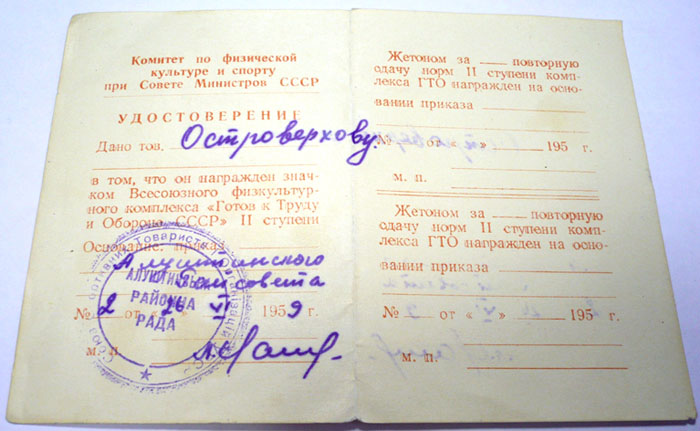 Комитет по физической
культуре и спорту
при Совете Министров СССР
УДОСТОВЕРЕНИЕ
Дано тов. Островерхову
в том, что он награжден знач-
ком Всесоюзного физкультур-
ного комплекса «Готов к Труду
и Обороне СССР» II ступени
Основание: приказ
Алуштинского
Райсовета
№ 2 от « 26 » VI 1959 г.
м. п.
АЛУШТИНСЬКА
РАЙОННА
РАДА
Жетоном за повторную
сдачу норм II ступени комп-
лекса ГТО награжден на осно-
вании приказа
№ от « » 195 г.
м. п.
Жетоном за повторную
сдачу норм II ступени комп-
лекса ГТО награжден на осно-
вании приказа
№ от « » 195 г.
м. п.